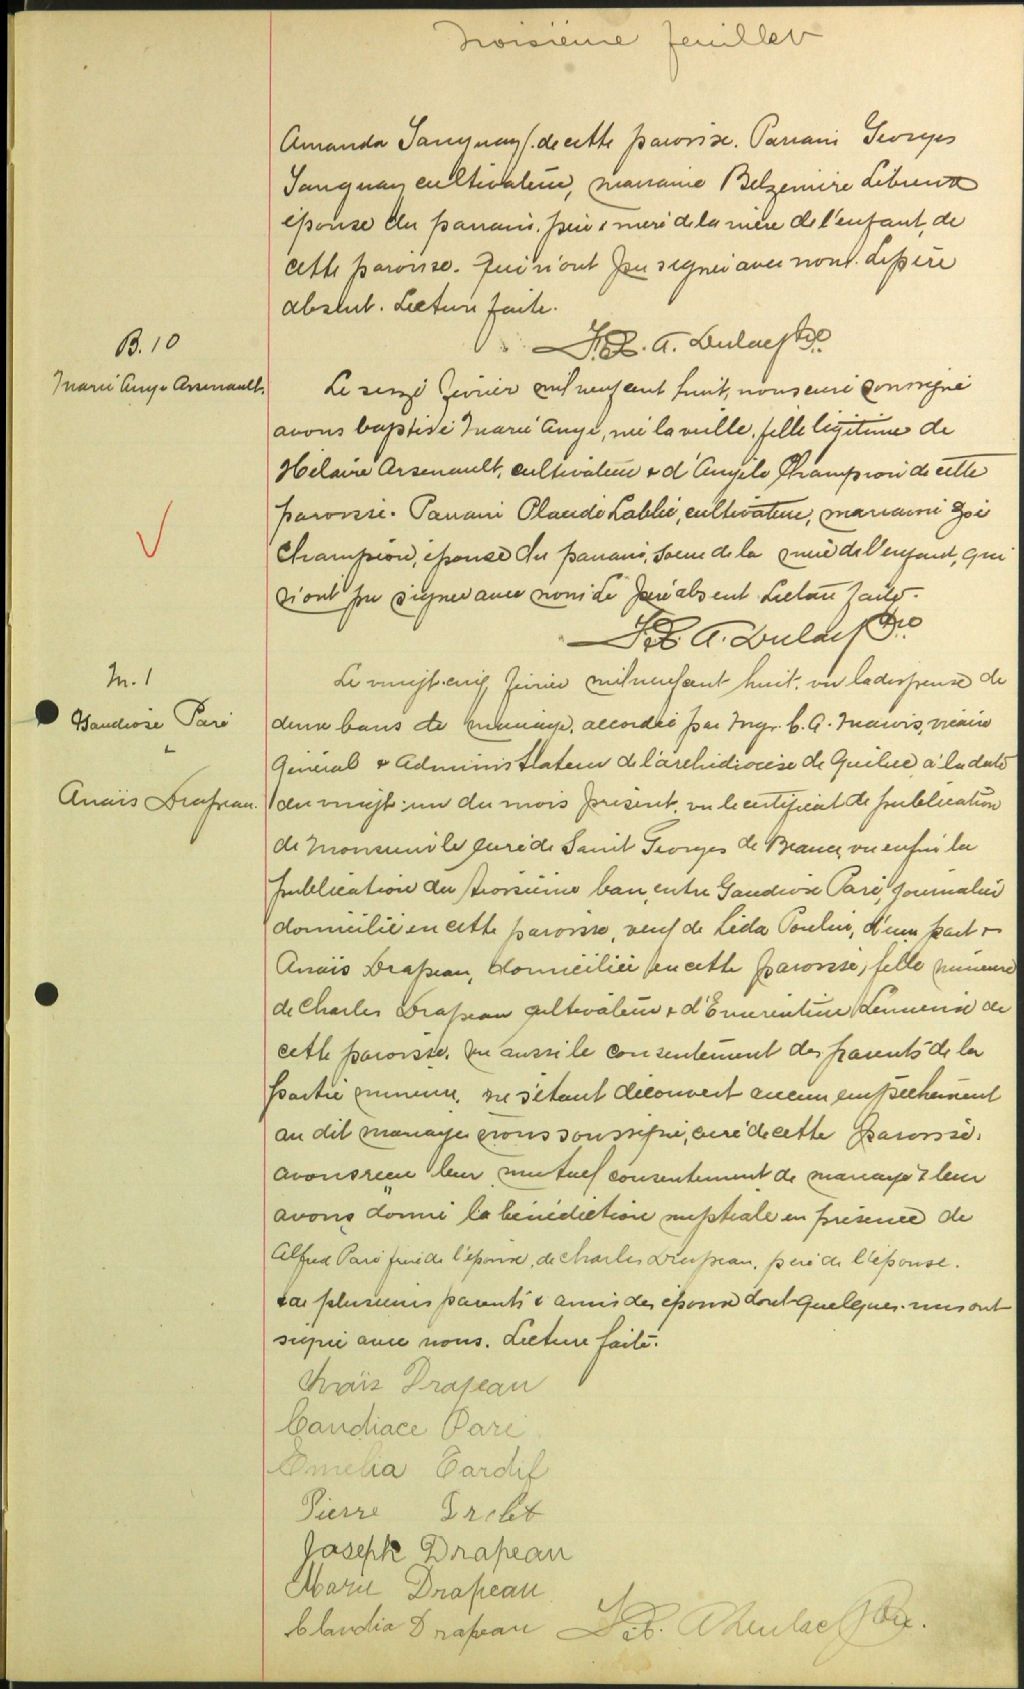 Troisième feuillet
Amanda Tanguay) de cette paroisse. Parrain Georges
Tanguay cultivateur, marraine Belzemire
épouse du parrain, père & mère de la mère de l'enfant, de
cette paroisse. qui n'ont pu signer avec nous. Le père
absent. Lecture faite.
A. Dulac Ptre
B. 10
Marie Ange Arsenault.
Le seize février mil neuf cent huit, nous curé soussigné
avons baptisé Marie Ange, née la veille, fille légitime de
Hilaire Arsenault, cultivateur & d'Angèle Champion de cette
paroisse. Parrain Plaude Labbé, cultivateur, marraine Zoé
Champion, épouse du parrain, soeur de la mère de l'enfant, qui
n'ont pu signer avec nous Le père absent Lecture faite.
A. Dulac Ptre
M. 1
Gaudiose Paré
&
Anaïs Drapeau.
Le vingt-cinq février mil neuf cent huit, vu la dispense de
deux bans de mariage, accordée par Mgr. C. A. Marois, vicaire
Général & Administrateur de l'archidiocèse de Québec, à la date
du vingt-un du mois présent, vu le certificat de publication
de Monsieur le curé de Saint Georges de Beauce, vu enfin la
publication du troisième ban, entre Gaudiose Paré, journalier
domicilié en cette paroisse, veuf de Léda Poulin, d'une part &
Anaïs Drapeau, domiciliée en cette paroisse, fille mineure
de Charles Drapeau cultivateur & d'Emerentine Lemieux de
cette paroisse. vu aussi le consentement des parents de la
partie mineure, ne s'étant découvert aucun empêchement
au dit mariage nous soussigné, curé de cette paroisse,
avons reçu leur mutuel consentement de mariage & leur
avons donné la bénédiction nuptiale en présence de
Alfred Paré frère de l'époux, de Charles Drapeau, père de l'épouse.
& de plusieurs parents & amis des époux dont quelques-uns ont
signé avec nous. Lecture faite.
Anaïs Drapeau
Candiace Paré
Emelia Tardif
Pierre
Joseph Drapeau
Marie Drapeau
Claudia Drapeau A Dulac Ptre.